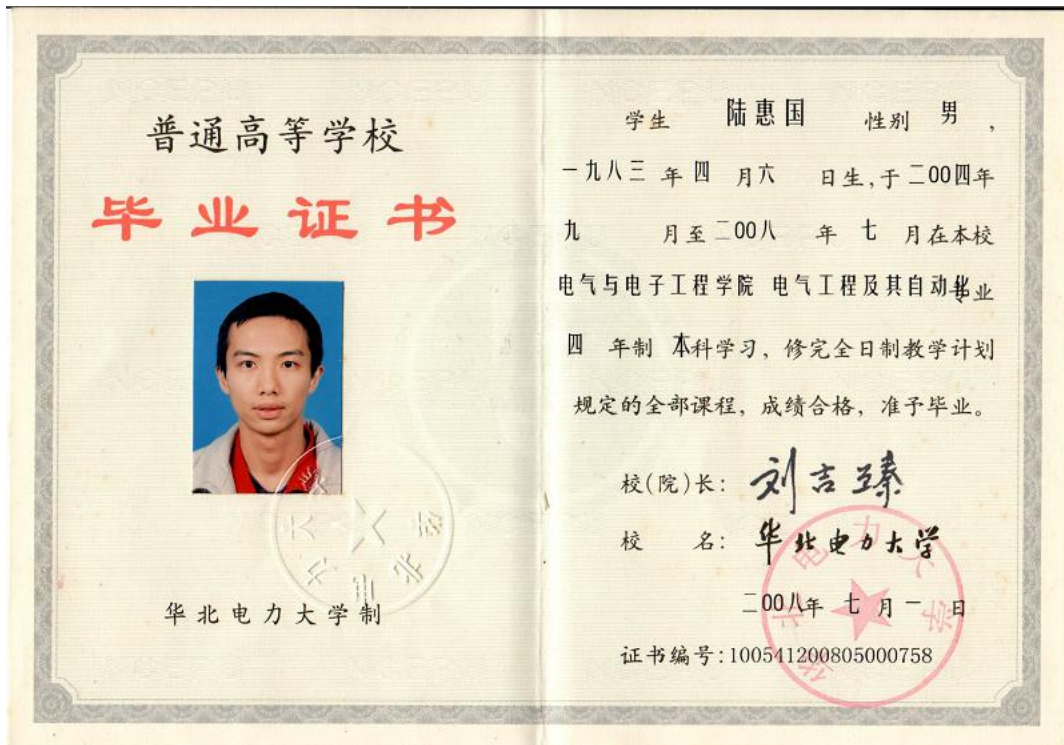 普通高等学校
毕业证书
华北电力大学制
学生 陆惠国 性别 男,
一九八三 年 四 月 六 日生,于 二00四 年
九 月至 二00八 年 七 月在本校
电气与电子工程学院 电气工程及其自动化专业
四 年制 本科学习，修完全日制教学计划
规定的全部课程，成绩合格，准予毕业。
校(院)长: 刘吉臻
校 名: 华北电力大学
二00八年 七 月 一 日
证书编号:100541200805000758
华北电力大学